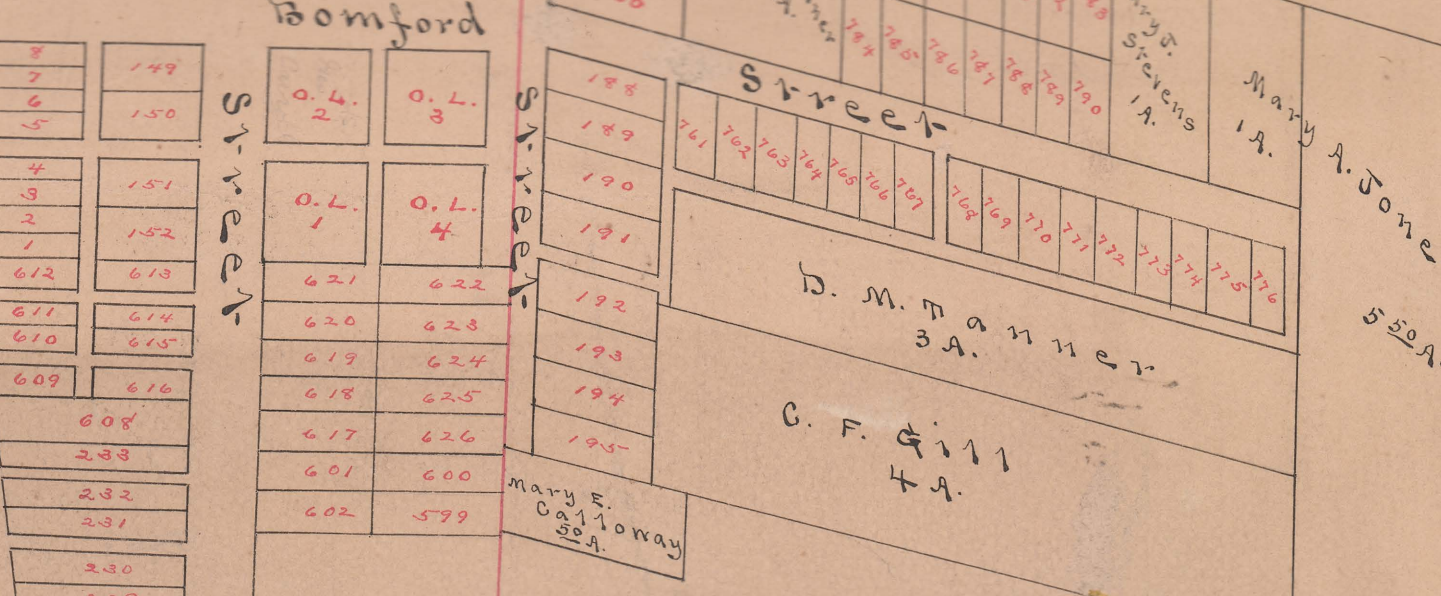 Bomford
8
7
6
5
4
3
2
1
612
611
610
609
608
233
232
231
230
149
150
151
152
613
614
615
616
Street
O. L.
2
O. L.
3
O. L.
1
O. L.
4
621 622
620 623
619 624
618 625
617 626
601 600
602 599
Street
188
189
190
191
192
193
194
195
Mary E.
Calloway
50 A.
Street
761 762 763 764 765 766 767
768 769 770 771 772 773 774 775 776
784 785 786 787 788 789 790
D. M. Tanner
3 A.
C. F. Gill
4 A.
J.
Stevens
1 A.
Mary A. Jone
1 A.
5 50 A.